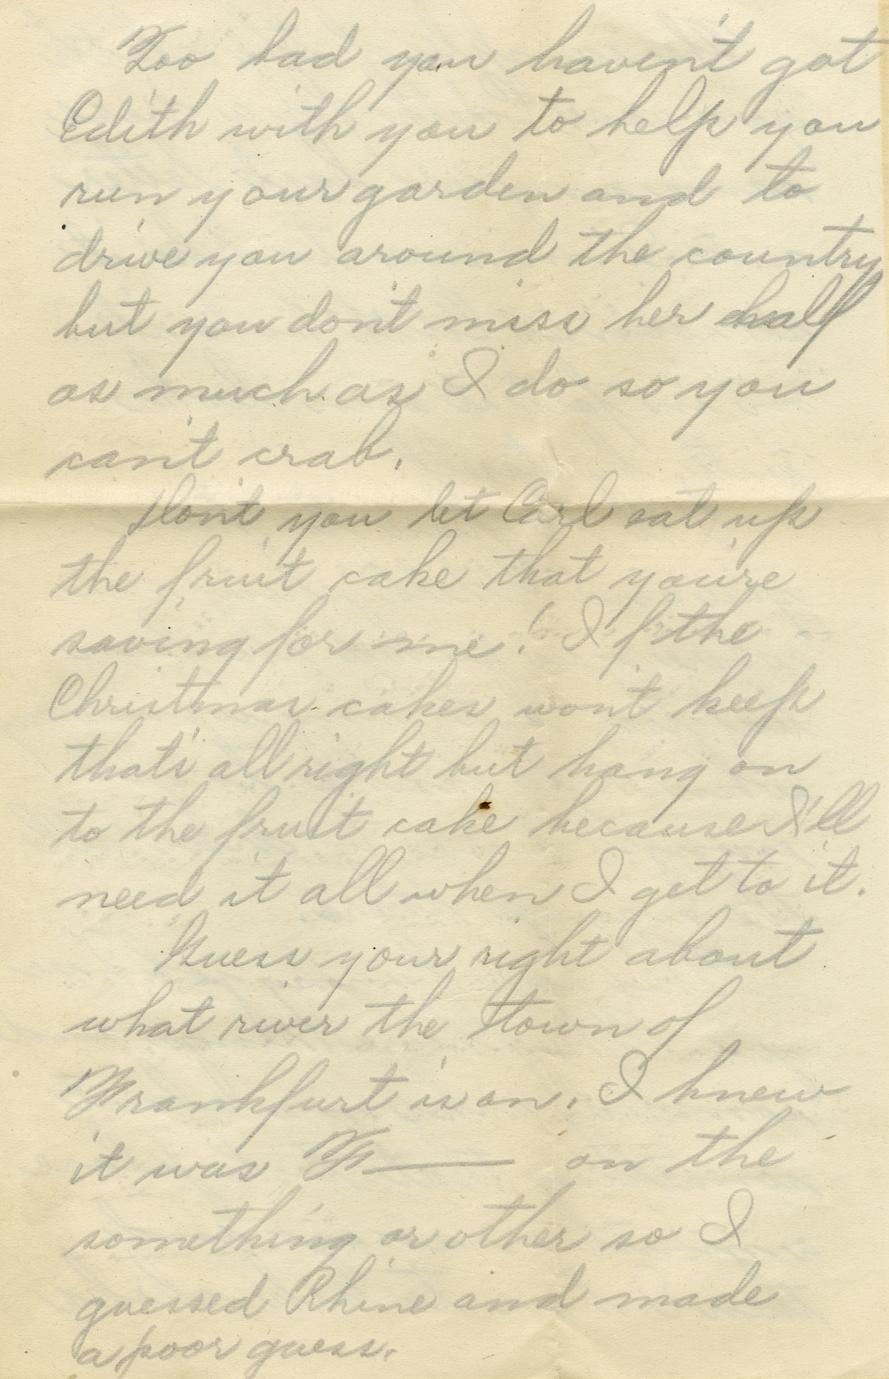 Too bad you haven't got
Edith with you to help you
run your garden and to
drive you around the country
but you don't miss her half
as much as I do so you
can't crab.
Don't you let Carl eat up
the fruit cake that you're
saving for me! If the
Christmas cakes won't keep
that's all right but hang on
to the fruit cake because I'll
need it all when I get to it.
Guess your right about
what river the town of
Frankfurt is on. I knew
it was F—— on the
something or other so I
guessed Rhine and made
a poor guess.